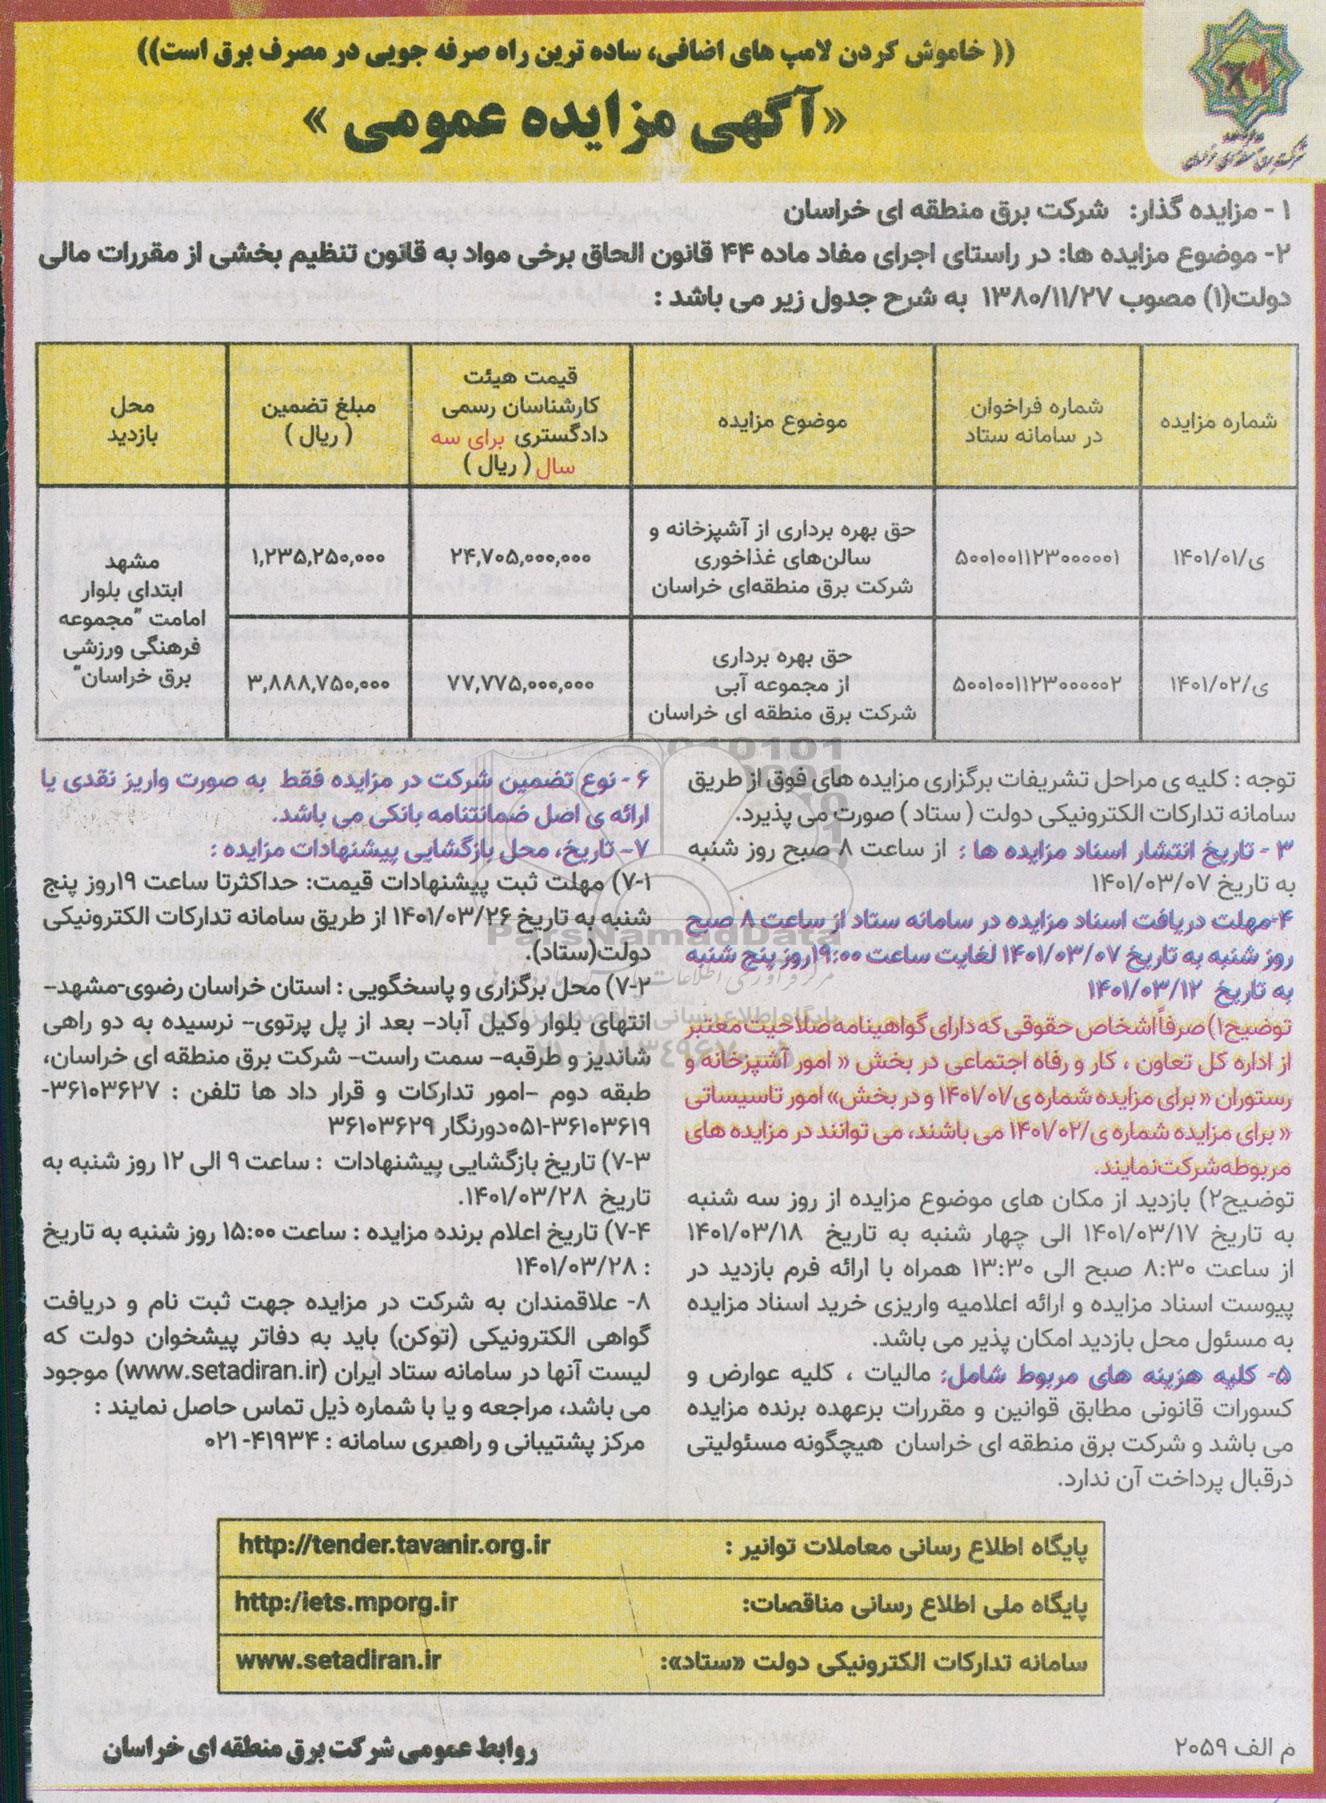 (( خاموش کردن لامپ های اضافی، ساده ترین راه صرفه جویی در مصرف برق است))
«آگهی مزایده عمومی »
شرکت برق منطقه‌ای خراسان
۱ - مزایده گذار: شرکت برق منطقه ای خراسان
۲- موضوع مزایده ها: در راستای اجرای مفاد ماده ۴۴ قانون الحاق برخی مواد به قانون تنظیم بخشی از مقررات مالی
دولت(۱) مصوب ۱۳۸۰/۱۱/۲۷ به شرح جدول زیر می باشد :
شماره مزایده
شماره فراخوان
در سامانه ستاد
موضوع مزایده
قیمت هیئت
کارشناسان رسمی
دادگستری برای سه
سال ( ریال )
مبلغ تضمین
( ریال )
محل
بازدید
ی/۱۴۰۱/۰۱
۵۰۰۱۰۰۱۱۲۳۰۰۰۰۰۱
حق بهره برداری از آشپزخانه و
سالن‌های غذاخوری
شرکت برق منطقه‌ای خراسان
۲۴,۷۰۵,۰۰۰,۰۰۰
۱,۲۳۵,۲۵۰,۰۰۰
مشهد
ابتدای بلوار
امامت "مجموعه
فرهنگی ورزشی
برق خراسان"
ی/۱۴۰۱/۰۲
۵۰۰۱۰۰۱۱۲۳۰۰۰۰۰۲
حق بهره برداری
از مجموعه آبی
شرکت برق منطقه ای خراسان
۷۷,۷۷۵,۰۰۰,۰۰۰
۳,۸۸۸,۷۵۰,۰۰۰
توجه : کلیه ی مراحل تشریفات برگزاری مزایده های فوق از طریق
سامانه تدارکات الکترونیکی دولت ( ستاد ) صورت می پذیرد.
۳ - تاریخ انتشار اسناد مزایده ها : از ساعت ۸ صبح روز شنبه
به تاریخ ۱۴۰۱/۰۳/۰۷
۴-مهلت دریافت اسناد مزایده در سامانه ستاد از ساعت ۸ صبح
روز شنبه به تاریخ ۱۴۰۱/۰۳/۰۷ لغایت ساعت ۱۹:۰۰روز پنج شنبه
به تاریخ ۱۴۰۱/۰۳/۱۲
توضیح۱) صرفاً اشخاص حقوقی که دارای گواهینامه صلاحیت معتبر
از اداره کل تعاون ، کار و رفاه اجتماعی در بخش « امور آشپزخانه و
رستوران « برای مزایده شماره ی/۱۴۰۱/۰۱ و در بخش» امور تاسیساتی
« برای مزایده شماره ی/۱۴۰۱/۰۲ می باشند، می توانند در مزایده های
مربوطه شرکت نمایند.
توضیح۲) بازدید از مکان های موضوع مزایده از روز سه شنبه
به تاریخ ۱۴۰۱/۰۳/۱۷ الی چهار شنبه به تاریخ ۱۴۰۱/۰۳/۱۸
از ساعت ۸:۳۰ صبح الی ۱۳:۳۰ همراه با ارائه فرم بازدید در
پیوست اسناد مزایده و ارائه اعلامیه واریزی خرید اسناد مزایده
به مسئول محل بازدید امکان پذیر می باشد.
۵- کلیه هزینه های مربوط شامل: مالیات ، کلیه عوارض و
کسورات قانونی مطابق قوانین و مقررات برعهده برنده مزایده
می باشد و شرکت برق منطقه ای خراسان هیچگونه مسئولیتی
درقبال پرداخت آن ندارد.
۶ - نوع تضمین شرکت در مزایده فقط به صورت واریز نقدی یا
ارائه ی اصل ضمانتنامه بانکی می باشد.
۷- تاریخ، محل بازگشایی پیشنهادات مزایده :
۷-۱) مهلت ثبت پیشنهادات قیمت: حداکثرتا ساعت ۱۹روز پنج
شنبه به تاریخ ۱۴۰۱/۰۳/۲۶ از طریق سامانه تدارکات الکترونیکی
دولت(ستاد).
۷-۲) محل برگزاری و پاسخگویی : استان خراسان رضوی-مشهد-
انتهای بلوار وکیل آباد- بعد از پل پرتوی- نرسیده به دو راهی
شاندیز و طرقبه- سمت راست- شرکت برق منطقه ای خراسان،
طبقه دوم -امور تدارکات و قرار داد ها تلفن : ۳۶۱۰۳۶۲۷-
۰۵۱-۳۶۱۰۳۶۱۹دورنگار ۳۶۱۰۳۶۲۹
۷-۳) تاریخ بازگشایی پیشنهادات : ساعت ۹ الی ۱۲ روز شنبه به
تاریخ ۱۴۰۱/۰۳/۲۸.
۷-۴) تاریخ اعلام برنده مزایده : ساعت ۱۵:۰۰ روز شنبه به تاریخ
: ۱۴۰۱/۰۳/۲۸
۸- علاقمندان به شرکت در مزایده جهت ثبت نام و دریافت
گواهی الکترونیکی (توکن) باید به دفاتر پیشخوان دولت که
لیست آنها در سامانه ستاد ایران (www.setadiran.ir) موجود
می باشد، مراجعه و یا با شماره ذیل تماس حاصل نمایند :
مرکز پشتیبانی و راهبری سامانه : ۴۱۹۳۴-۰۲۱
ParsNamadData
پایگاه اطلاع رسانی معاملات توانیر : http://tender.tavanir.org.ir
پایگاه ملی اطلاع رسانی مناقصات: http:/iets.mporg.ir
سامانه تدارکات الکترونیکی دولت «ستاد»: www.setadiran.ir
م الف ۲۰۵۹
روابط عمومی شرکت برق منطقه ای خراسان